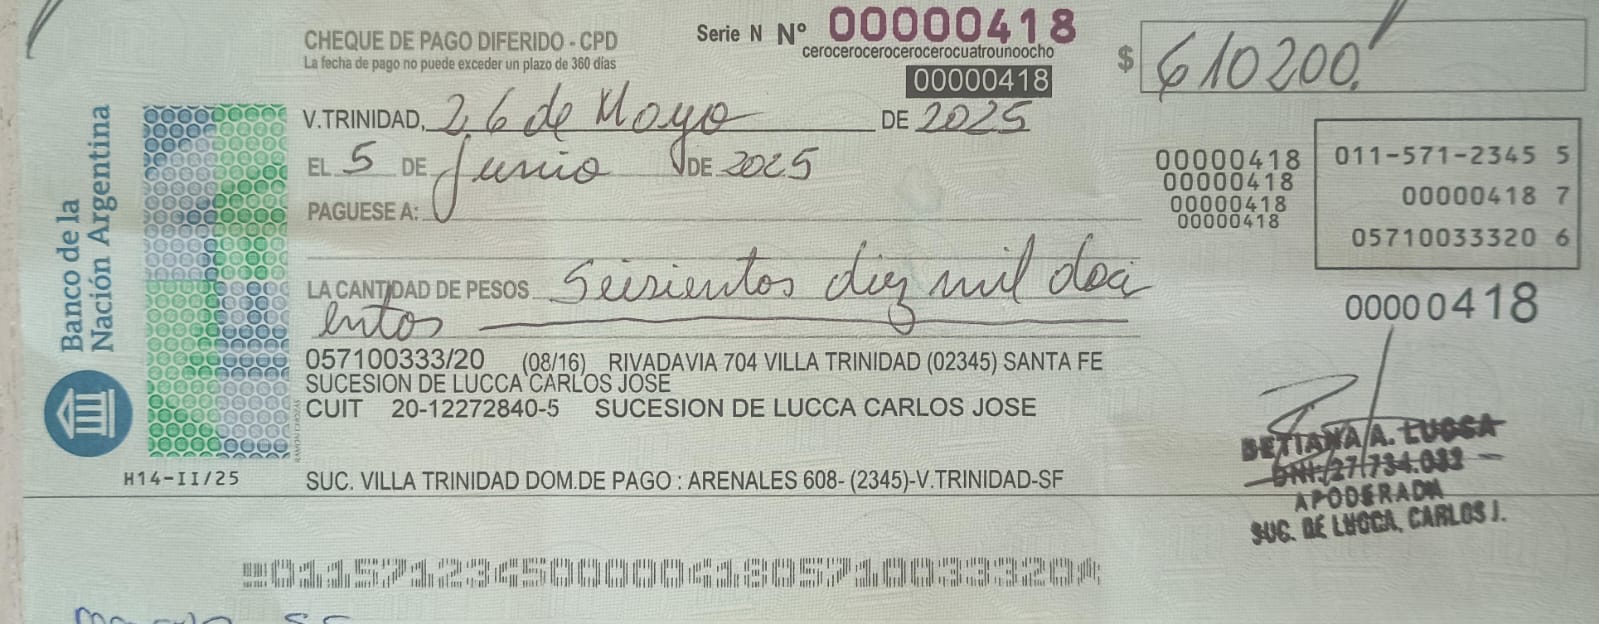 CHEQUE DE PAGO DIFERIDO - CPD
La fecha de pago no puede exceder un plazo de 360 días
Serie N Nº 00000418
cerocerocerocerocerocuatrounoocho
00000418
$ 610200.
V.TRINIDAD, 26 de Mayo DE 2025
EL 5 DE Junio DE 2025
PAGUESE A:
LA CANTIDAD DE PESOS Seisientos diez mil doci
entos
00000418
00000418
00000418
00000418
011-571-2345 5
00000418 7
05710033320 6
00000418
057100333/20 (08/16) RIVADAVIA 704 VILLA TRINIDAD (02345) SANTA FE
SUCESION DE LUCCA CARLOS JOSE
CUIT 20-12272840-5 SUCESION DE LUCCA CARLOS JOSE
SUC. VILLA TRINIDAD DOM.DE PAGO : ARENALES 608- (2345)-V.TRINIDAD-SF
Banco de la
Nación Argentina
H14-II/25
BETIANA A. LUCCA
DNI: 27.734.033
APODERADA
SUC. DE LUCCA, CARLOS J.
01157123450000041805710033320